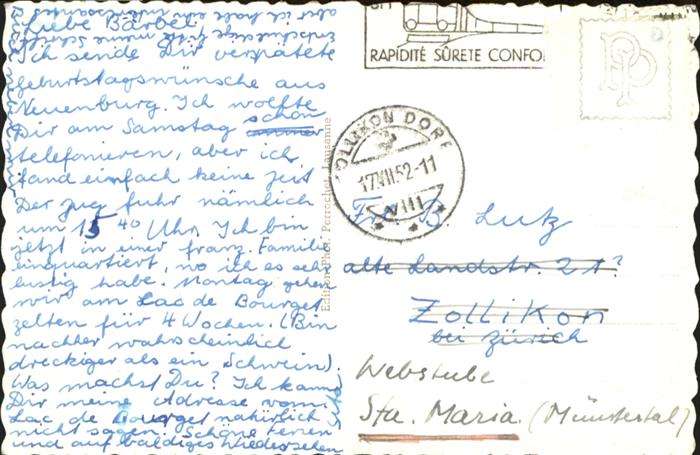 Liebe Bärbel!
Ich sende Dir verspätete
Geburtstagswünsche aus
Neuenburg. Ich wollte
Dir am Samstag schon
telefonieren, aber ich
fand einfach keine Zeit
Der Zug fuhr nämlich
um 15 40 Uhr. Ich bin
jetzt in einer franz. Familie
einquartiert, wo ich es sehr
lustig habe. Montag gehen
wir am Lac de Bourget
zelten für 4 Wochen. (Bin
nachher wahrscheinlich
dreckiger als ein Schwein).
Was machst Du? Ich kann
Dir meine Adresse vom
Lac de Bourget natürlich
nicht sagen. Schöne Ferien
und auf baldiges Wiedersehen
Perrochet, Lausanne
RAPIDITÉ SÛRETE CONFO
ZOLLIKON DORF
17.VII.52-11
VIII
PP
Frl. B. Lutz
alte Landstr. 21?
Zollikon
bei Zürich
Webstube
Sta. Maria (Münstertal)